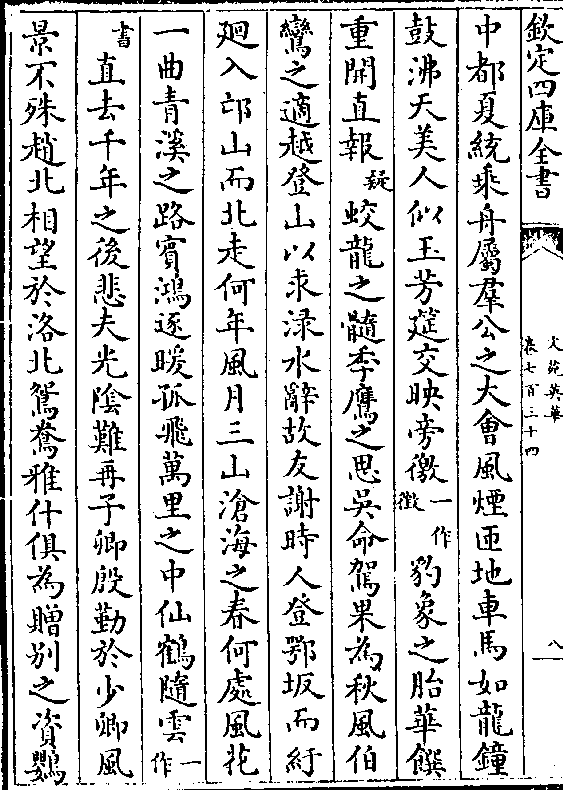 欽定四庫全書
文苑英華
卷七百三十四
八
中都夏統乘舟屬羣公之大會風煙匝地車馬如龍鐘
鼓沸天美人似玉芳筵交映旁徼一作徵豹象之胎華饌
重開直報疑蛟龍之髓季鷹之思吳命駕果為秋風伯
鸞之適越登山以求渌水辭故友謝時人登鄂坂而紆
廻入邙山而北走何年風月三山滄海之春何處風花
一曲青溪之路賓鴻逐暖孤飛萬里之中仙鶴隨雲一作
書直去千年之後悲夫光隂難再子卿殷勤於少卿風
景不殊趙北相望於洛北鴛鴦雅什俱為贈別之資鸚